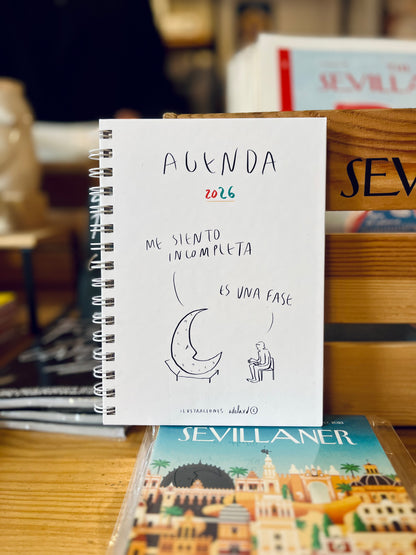 SEVILLANER
AGENDA
2026
ME SIENTO
INCOMPLETA
ES UNA FASE
ILUSTRACIONES
SEV
SEVILLANER